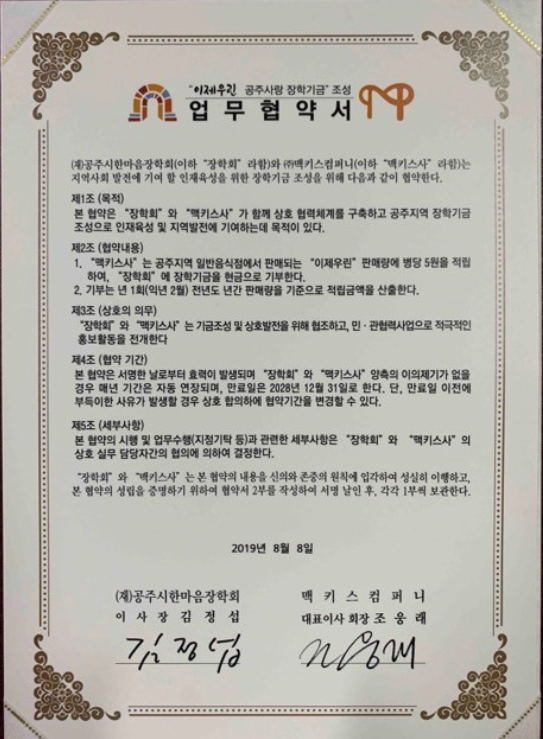 “이제우린 공주사랑 장학기금” 조성
업무협약서
(재)공주시한마음장학회(이하 “장학회” 라함)와 ㈜맥키스컴퍼니(이하 “맥키스사” 라함)는
지역사회 발전에 기여 할 인재육성을 위한 장학기금 조성을 위해 다음과 같이 협약한다.
제1조 (목적)
본 협약은 “장학회” 와 “맥키스사” 가 함께 상호 협력체계를 구축하고 공주지역 장학기금
조성으로 인재육성 및 지역발전에 기여하는데 목적이 있다.
제2조 (협약내용)
1. “맥키스사” 는 공주지역 일반음식점에서 판매되는 “이제우린” 판매량에 병당 5원을 적립
하여, “장학회” 에 장학기금을 현금으로 기부한다.
2. 기부는 년 1회(익년 2월) 전년도 년간 판매량을 기준으로 적립금액을 산출한다.
제3조 (상호의 의무)
“장학회” 와 “맥키스사” 는 기금조성 및 상호발전을 위해 협조하고, 민·관협력사업으로 적극적인
홍보활동을 전개한다
제4조 (협약 기간)
본 협약은 서명한 날로부터 효력이 발생되며 “장학회” 와 “맥키스사” 양측의 이의제기가 없을
경우 매년 기간은 자동 연장되며, 만료일은 2028년 12월 31일로 한다. 단, 만료일 이전에
부득이한 사유가 발생할 경우 상호 합의하에 협약기간을 변경할 수 있다.
제5조 (세부사항)
본 협약의 시행 및 업무수행(지정기탁 등)과 관련한 세부사항은 “장학회” 와 “맥키스사” 의
상호 실무 담당자간의 협의에 의하여 결정한다.
“장학회” 와 “맥키스사” 는 본 협약의 내용을 신의와 존중의 원칙에 입각하여 성실히 이행하고,
본 협약의 성립을 증명하기 위하여 협약서 2부를 작성하여 서명 날인 후, 각각 1부씩 보관한다.
2019년 8월 8일
(재)공주시한마음장학회 맥키스컴퍼니
이사장 김정섭 대표이사 회장 조웅래
김정섭 조웅래